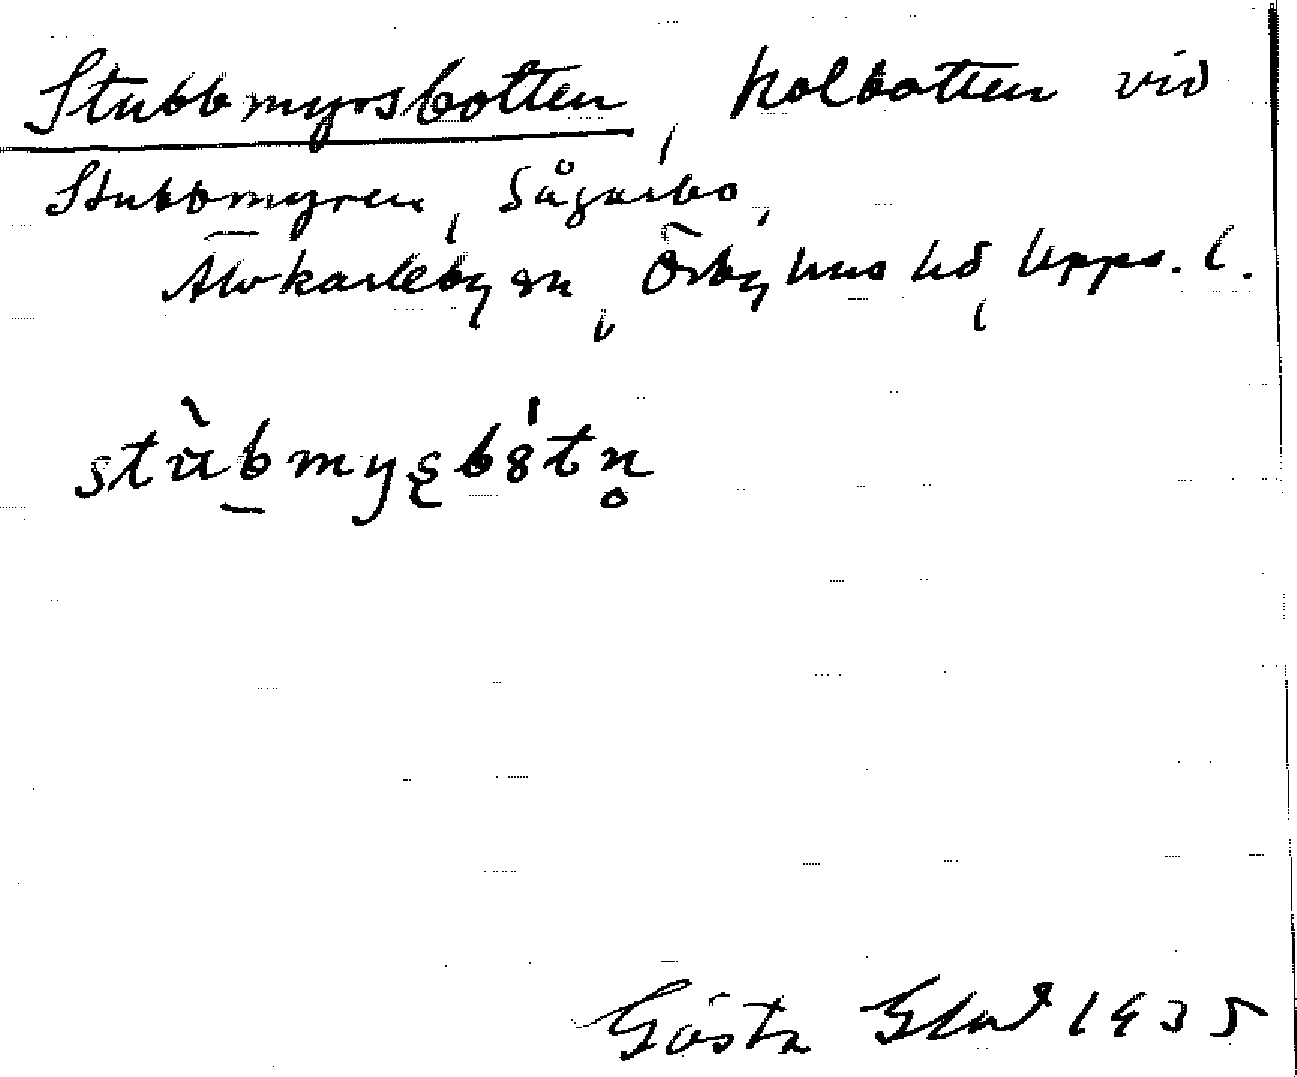 Stubbmyrsbotten, kolbotten vid
Stubbmyren, Sågarbo,
Älvkarleby sn, Örbyhus hd, Upps. l.
stùb̲myʂbȣ́tn̥
Gösta 1935